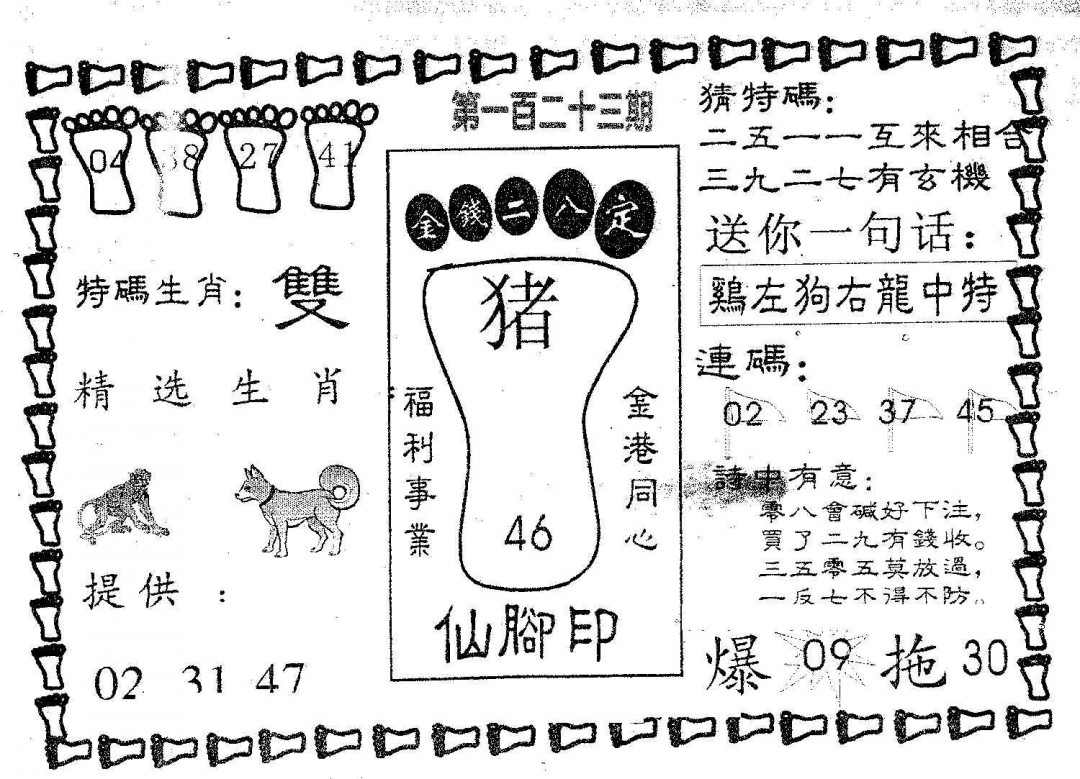 第一百二十三期
04 38 27 41
特碼生肖：雙
精选生肖
提供：
02 31 47
金錢二八定
猪
福利事業
金港同心
46
仙腳印
猜特碼：
二五一一互來相合
三九二七有玄機
送你一句话：
鷄左狗右龍中特
連碼：
02 23 37 45
詩中有意：
零八會碱好下注，
買了二九有錢收。
三五零五莫放過，
一反七不得不防。
爆 09 拖 30